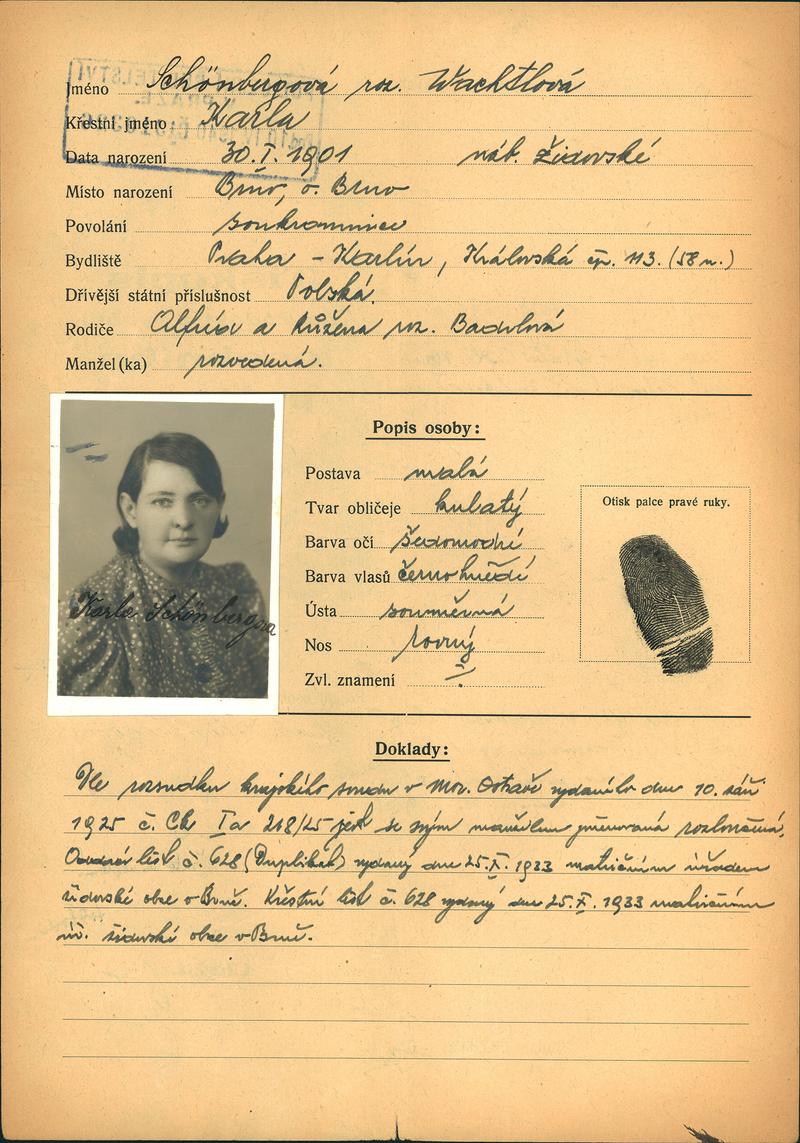 Jméno Schönbergová roz. Wachtlová
Křestní jméno: Karla
Data narození 30. I. 1901 náb. židovské
Místo narození Brno, o. Brno
Povolání soukromnice
Bydliště Praha - Karlín, Královská čp. 113. (58 n.)
Dřívější státní příslušnost Polská.
Rodiče Alfréd a Růžena roz.
Manžel (ka) rozvedená.
Popis osoby:
Postava malá
Tvar obličeje kulatý
Barva očí šedomodré
Barva vlasů černohnědé
Ústa souměrná
Nos rovný
Zvl. znamení
Otisk palce pravé ruky.
Karla Schönbergova
Doklady:
Dle rozsudku krajského soudu v Mor. Ostravě vydaného dne 10. září
1925 č. Ck Ia 218/25 jest se svým manželem jmenovaná rozloučená,
list č. 628 (Duplikát) vydaný dne 25. X. 1933 matričním úřadem
židovské obce v Brně. Křestní list č. 628 vydaný dne 25. X. 1933 matričním
úř. židovské obce v Brně.